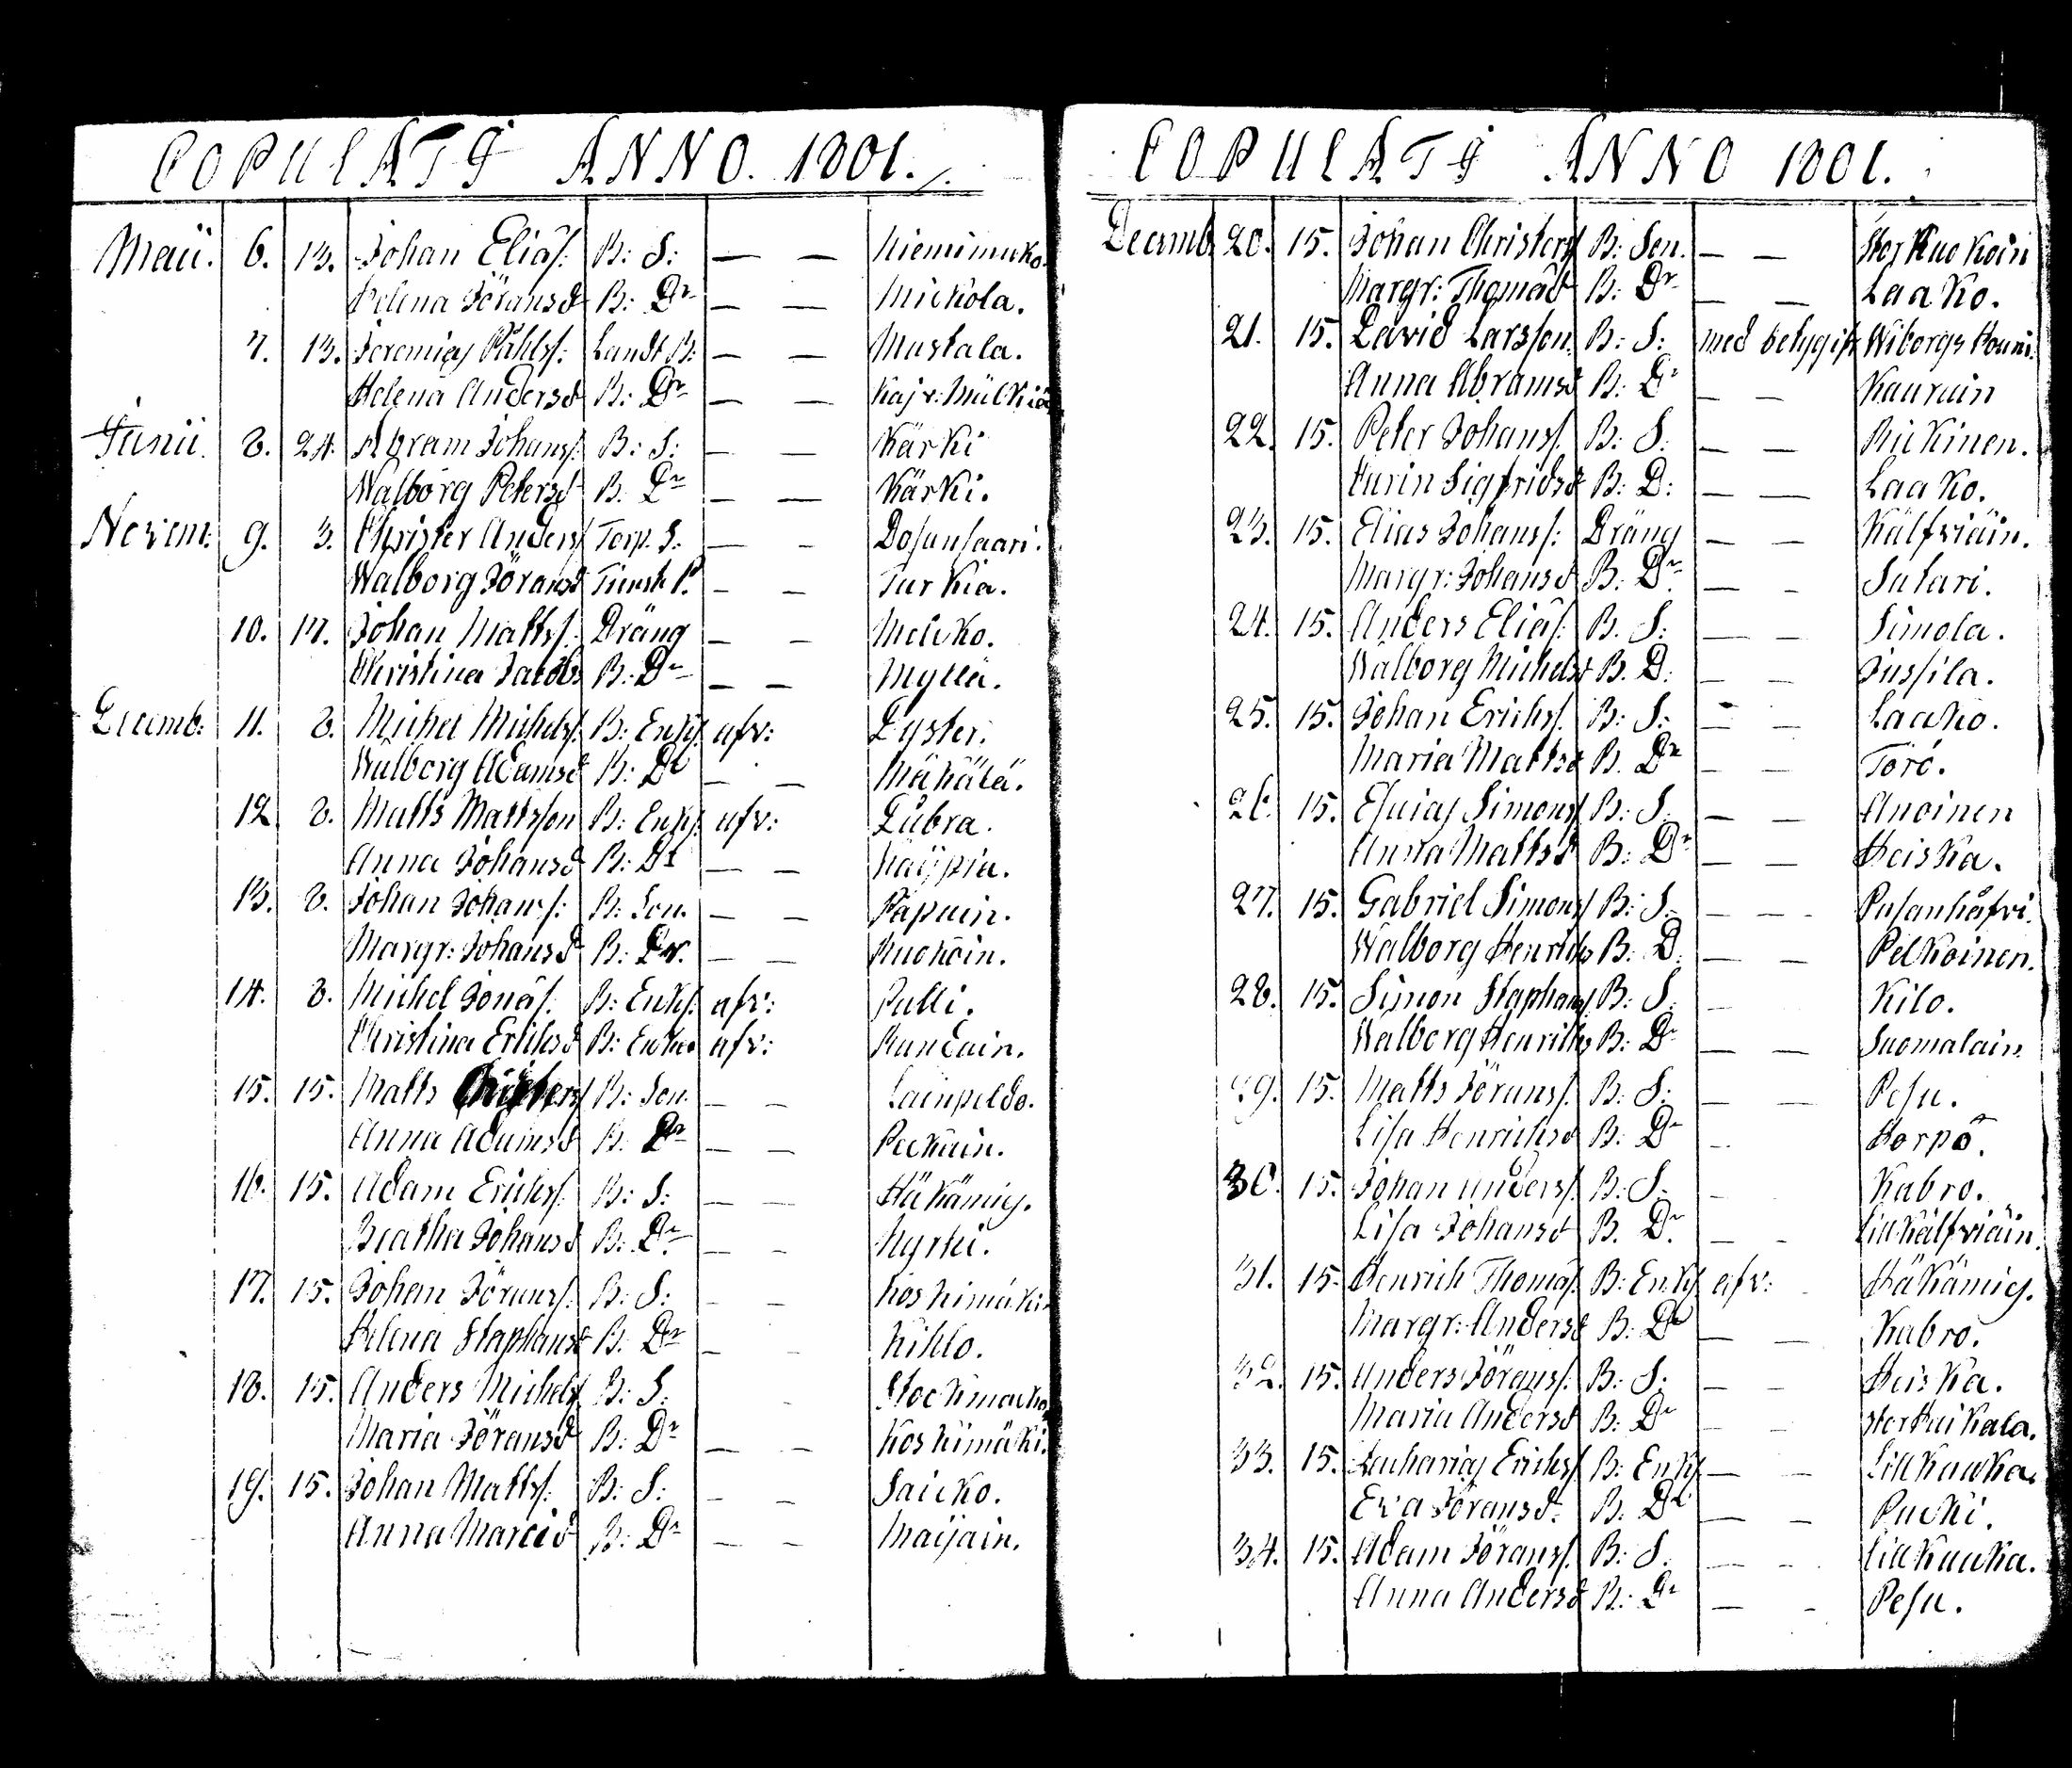 COPULATI ANNO. 1801.
Maii. 6. 13. Johan Eliæs/: B: S: — — Niemimuko.
Helena Jöransd B: Dr — — Mickola.
7. 13. Jeremias Påhls/: Landt B: — — Mustala.
Helena Andersd B: Dr — —
Junii. 8. 24. Abram Johans/: B: S: — — Kärki
Walborg Petersd B. Dr — — Kärki.
Novem: 9. 3. Christer Anders/ Torp. S: — -
Walborg Jöransd - — Turkia.
10. 17. Johan Matts/: Dräng — — Melcko.
Christina Jacobs B: Dr — — Myllä.
Decemb: 11. 8. Michel Michels/: B: Enkl. afv: Lyster.
Walborg Adamsd B: Dr — — Mäkälä.
12. 8. Matts Mattsson B: Enkl. afv: Lübra.
Anna Johansd B: Dr — — Kaippia.
13. 8. Johan Johans/: B: Son. — — Papuin.
Margr: Johansd B: Dr. — — Kuokoin.
14. 8. Michel Jonæs/: B: Enkl. afv: Pulli.
Christina Erichsd B: Enka afv:
15. 15. Matts Christers/ B: Son. — — Lainpeldo.
Anna Adamsd B: Dr — — Peckain.
16. 15. Adam Erichs/: B: S: — — Häkämies.
Beatha Johansd B: Dr — — Kyrki.
17. 15. Johan Jörans/: B: S: — — Koskimäki.
Helena Staphansd B: Dr — — Kihlo.
18. 15. Anders Michels/ B: S:
Maria Jöransd B: Dr — — Koskimäki.
19. 15. Johan Matts/: B: S: — — Saicko.
Anna Marcisd B: Dr — — Maijain.
COPULATI ANNO 1801.
Decemb. 20. 15. Johan Christers/ B: Son. — — Stor Kuokoin
Margr: Thomæd B: Dr — — Laako.
21. 15. David Larsson. B: S: med betyg ifr. Wiborgs
Anna Abramsd B: Dr — — Kauruin
22. 15. Peter Johans/. B: S: — — Rickinen.
Karin Sigfridsd B: D: — — Laako.
23. 15. Elias Johans/: Dräng — — Kälfviäin.
Margr: Johansd B: Dr — - Sutari.
24. 15. Anders Eliæs/. B. S: — — Simola.
Walborg Michelsd B. D: — — Jussila.
25. 15. Johan Erichs/. B: S: - — Laako.
Maria Mattsd B. Dr — — Törö.
26. 15. Esaias Simons/ B: S: — — Anoinen
Anna Mattsd B: Dr — — Heiska.
27. 15. Gabriel Simons/ B: S. — —
Walborg Henrichs B: D. — — Pelkoinen.
28. 15. Simon Staphans/. B: S: — Kilo.
Walborg Henrichs B: Dr — — Suomalain.
29. 15. Matts Jörans/. B: S: — — Pesu.
Lisa Henrichsd B: Dr — Horpo.
30. 15. Johan Anders/. B: S. — Kabro.
Lisa Johansd B. Dr. — - Lill Kälfviäin.
31. 15. Henrich Thomæs/. B: Enkl afv: Häkämies.
Margr: Andersd B: Dr — — Kabro.
32. 15. Anders Jörans/. B: S. — — Heiska.
Maria Andersd B: Dr — — Stor Huikala.
33. 15. Zacharias Erichs/ B: Enkl — — Lill Kauka.
Eva Jöransd. B. Dr — — Pucki.
34. 15. Adam Jörans/. B: S. — — Lill Kauka.
Anna Andersd B: Dr — - Pesu.